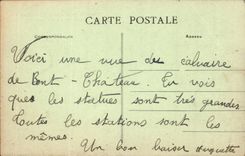 CARTE POSTALE
CORRESPONDANCE
ADRESSE
Voici une vue du calvaire
de Pont-Château. Tu vois
que les statues sont très grandes
Toutes les stations sont les
mêmes.
Un bon baiser Huguette